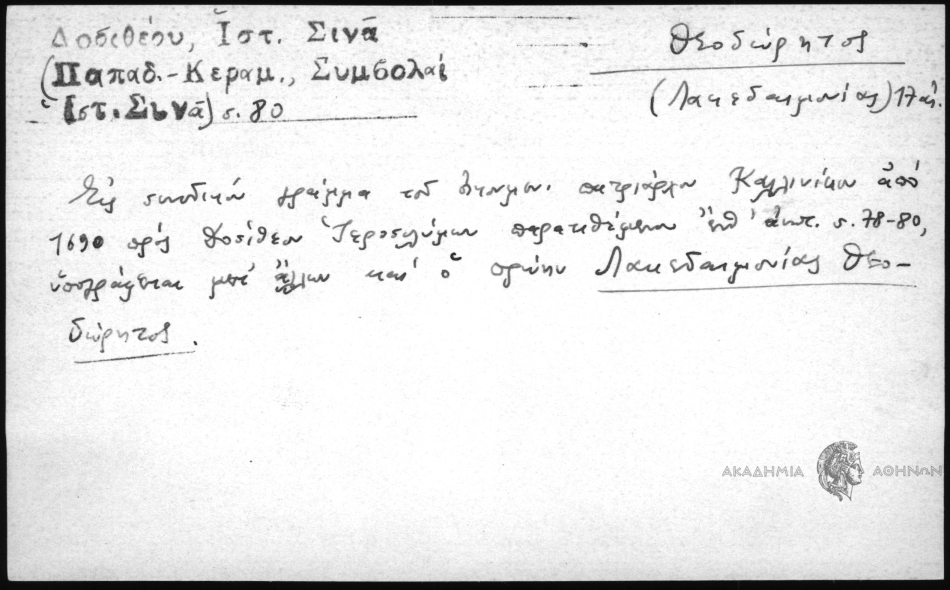 Δοσιθέου, Ἱστ. Σινᾶ
(Παπαδ.-Κεραμ., Συμβολαὶ
Ἱστ. Σινᾶ) σ. 80
Θεοδώρητος
(Λακεδαιμονίας) 17 αἰ.
Εἰς συνοδικὸν γράμμα τοῦ οἰκουμ. πατριάρχου Καλλινίκου ἀπὸ
1690 πρὸς Δοσίθεον Ἱεροσολύμων παρατιθέμενον ἐπ' σ. 78-80,
ὑπογράφεται μετ' ἄλλων καὶ ὁ πρώην Λακεδαιμονίας Θεο-
δώρητος.
ΑΚΑΔΗΜΙΑ ΑΘΗΝΩΝ